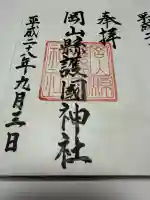 奉拝
岡山縣護國神社
平成二十八年九月三日